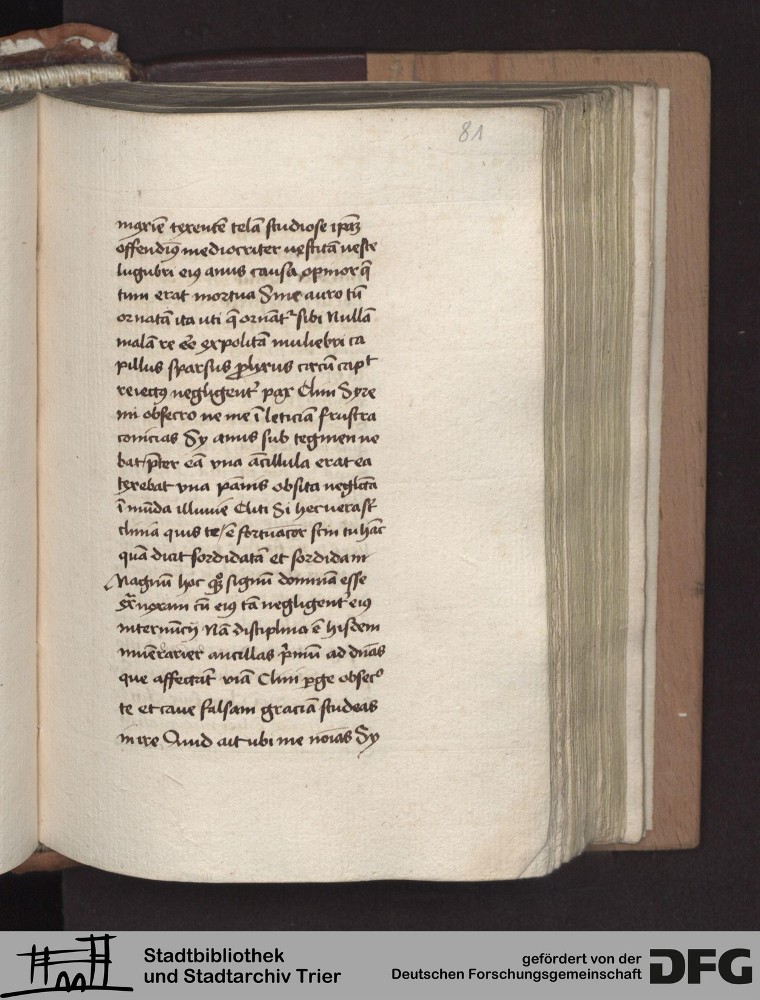 81
maxiē texentē telā studiose ipā3
offendim9 mediocriter uestitā ueste
lugubri ei9 anus causa opinor q̄
tum erat mortua Sine auro tū
ornatā ita uti q̄ ornāt᷑ sibi Nullā
malā re ēē expolitā muliebri ca
pillus sparsus ꝓlixus circū capt
reiect9 negligent᷑ pax Clini Syre
mi obsecro ne me ī leticiā frustra
conicias Sy anus sub tegmen ne
bat p̄ter eā vna ācillula erat ea
texebat vna pānis obsita neglcā
ī mūda illuuie Cliti Si hec uera st̄
clinia quis te ē fortuacor scin tu hāc
quā dicit sordidatā et sordidam
Magnū hoc q3 signū dominā esse
ex noxam cū ei9 tā negligent᷑ ei9
internūcij Nā disciplina ē hisdem
munerarier ancillas p̄mū ad dn̄as
que affectāt viā Clini ꝑge obseco
te et caue falsam graciā studeas
inire Quid ait ubi me noīas Sy
Stadtbibliothek
und Stadtarchiv Trier
gefördert von der
Deutschen Forschungsgemeinschaft
DFG